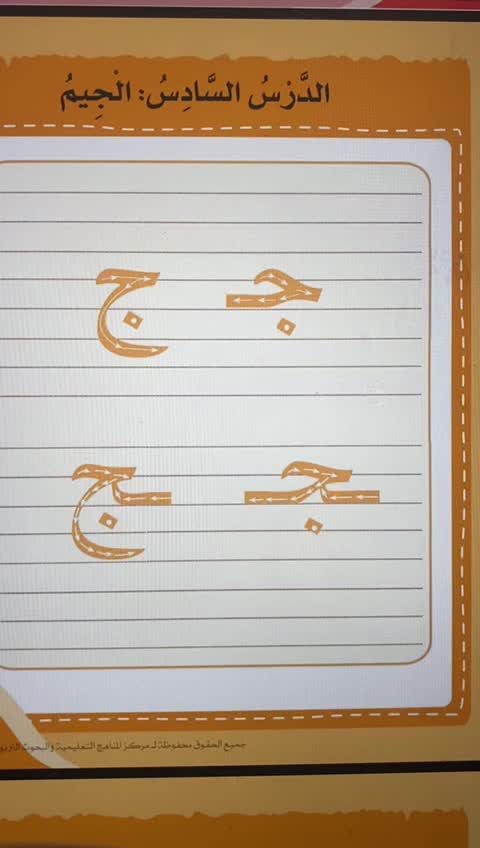 الدَّرْسُ السَّادِسُ: الْجِيمُ
جـ ج
ـجـ ـج
جميع الحقوق محفوظة لـ مركز المناهج التعليمية والبحوث